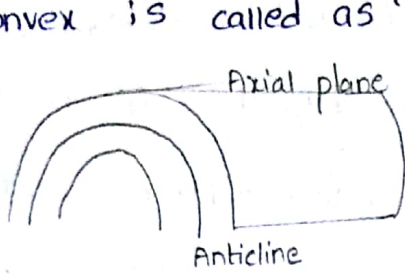 onvex is called as
Axial plane
Anticline